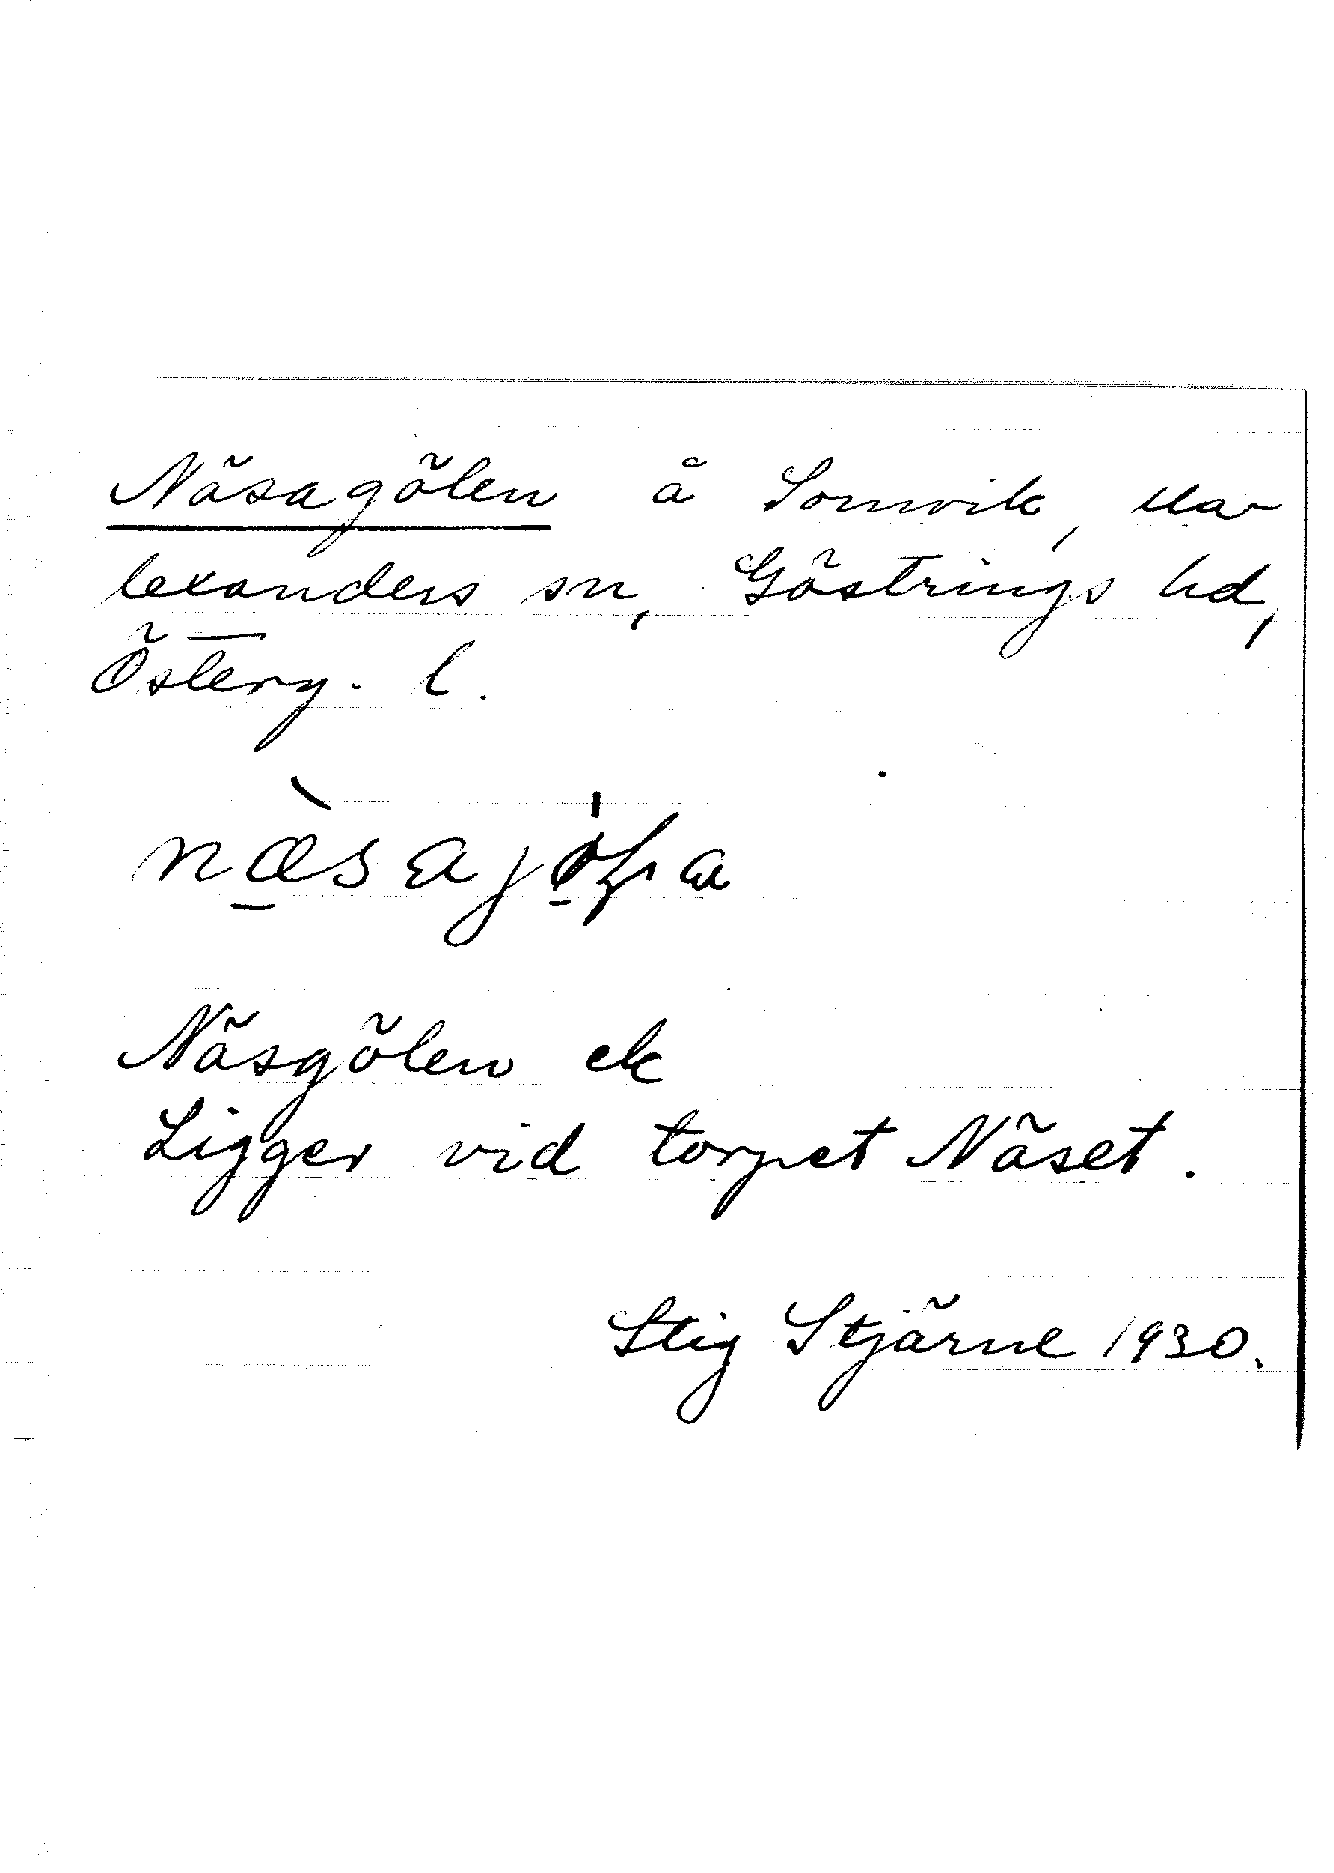 Näsagölen å Somvik, Ma-
lexanders sn, Göstrings hd,
Österg. l.
næ̀sajö́ɽa
Näsgölen ek
Ligger vid torpet Näset.
Stig Stjärne 1930.